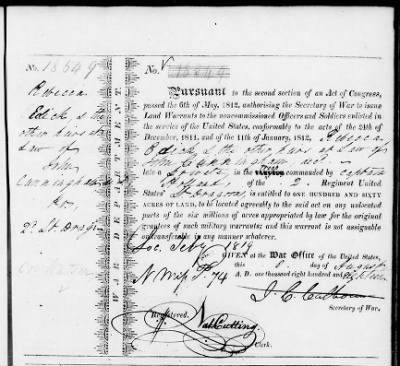 No. 18649
Rebecca
Edick, & the
other heirs at
Law of
John
Cunningham
2d. Lt. Drags
WAR DEPARTMENT.
No. 18649
Pursuant to the second section of an Act of Congress,
passed the 6th of May, 1812, authorising the Secretary of War to issue
Land Warrants to the noncommissioned Officers and Soldiers enlisted
in the service of the United States, conformably to the acts of the 24th of
December, 1811, and of the 11th of January, 1812, Rebecca
Edick, & the other heirs at Law of
John Cunningham
late a in the commanded by Captain
of the 2 Regiment United
States' Dragoons is entitled to ONE HUNDRED AND SIXTY
ACRES OF LAND, to be located agreeably to the said act on any unlocated
parts of the six millions of acres appropriated by law for the original
grantees of such military warrants; and this warrant is not assignable
or transferable in any manner whatever.
Loc. Feby 1819
GIVEN at the War Office of the United States,
this 8 day of August
A. D. one thousand eight hundred and
N 74
J. C. Calhoun
Secretary of War.
Registered.
Nat Cutting
Clerk.